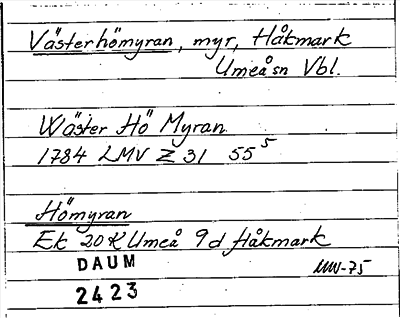 Västerhömyran, myr, Håkmark
Umeå sn Vbl.
Wäster Hö Myran
1784 LMV Z 31 55⁵
Hömyran
Ek 20 K Umeå 9d Håkmark
DAUM
2423
MW-75